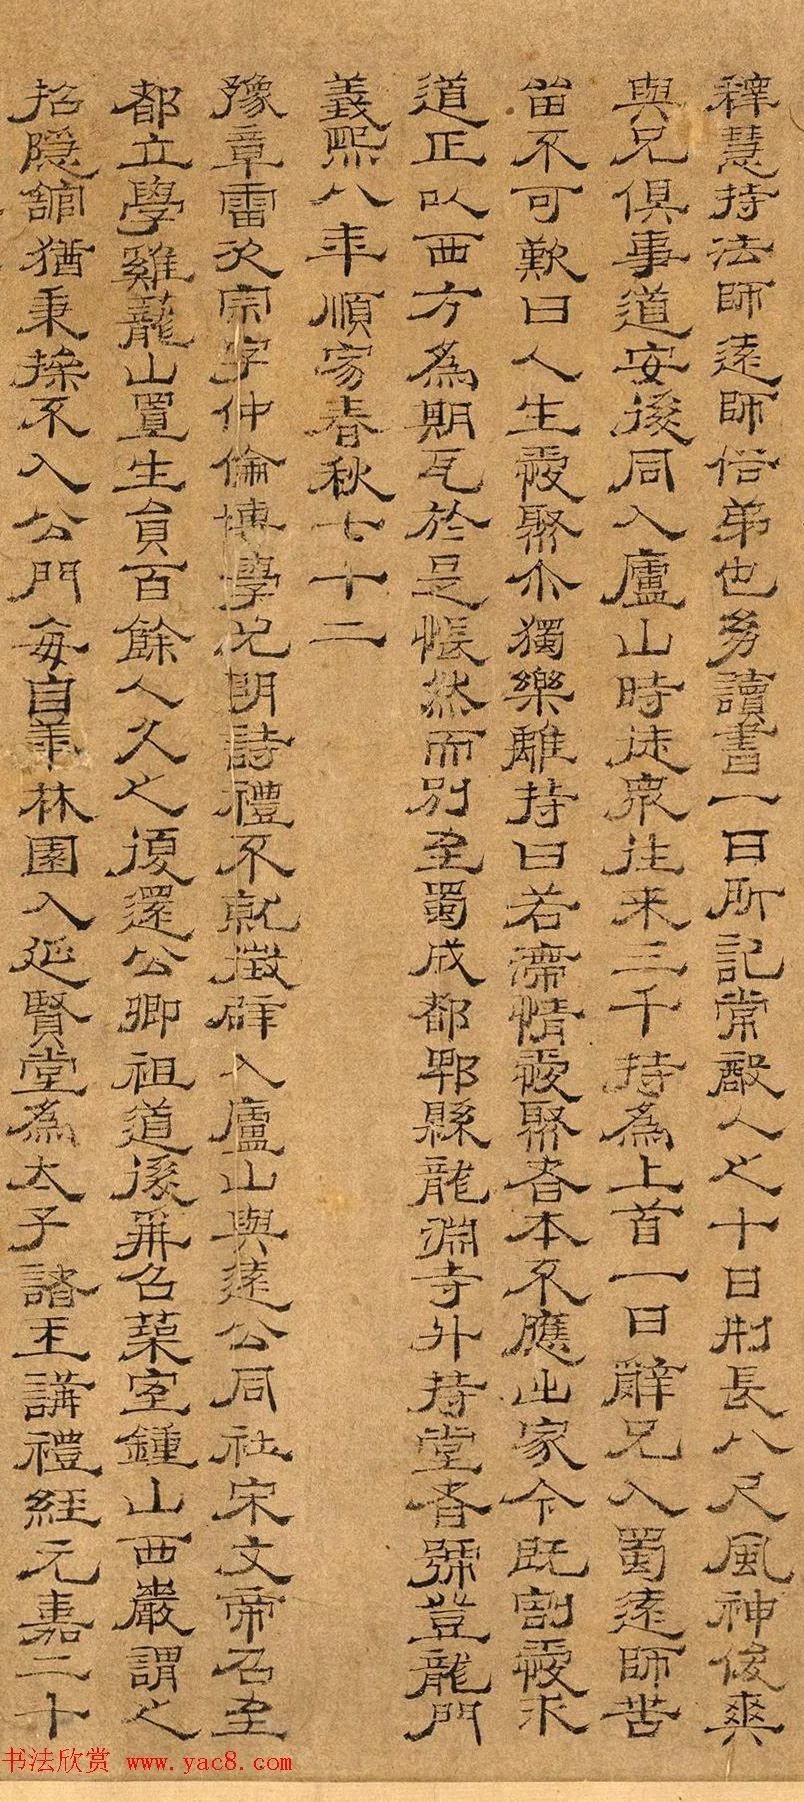 釋慧持法師遠師俗弟也㓜讀書一日所記常敵人之十日形長八尺風神俊爽
與兄俱事道安後同入廬山時徒衆往来三千持為上首一日辭兄入蜀遠師苦
留不可歎曰人生愛聚尒獨樂離持曰若滯情愛聚者本不應出家今既割愛求
道正以西方為期耳於是悵然而別至蜀成都郫縣龍淵寺外持堂者號登龍門
義熙八年順寂春秋七十二
豫章雷次宗字仲倫博學尤明詩禮不就徵辟入廬山與遠公同社宋文帝召至
都立學雞蘢山置生員百餘人久之復還公卿祖道後再召葉室鍾山西巖謂之
招隱舘猶秉操不入公門每自華林園入延賢堂為太子諸王講禮經元嘉二十
书法欣赏 www.yac8.com